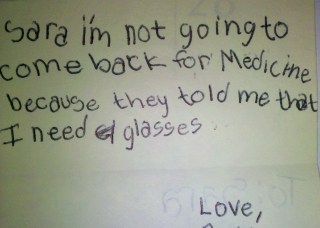 Sara i'm not going to
come back for Medicine
because they told me that
I need glasses..
Love,